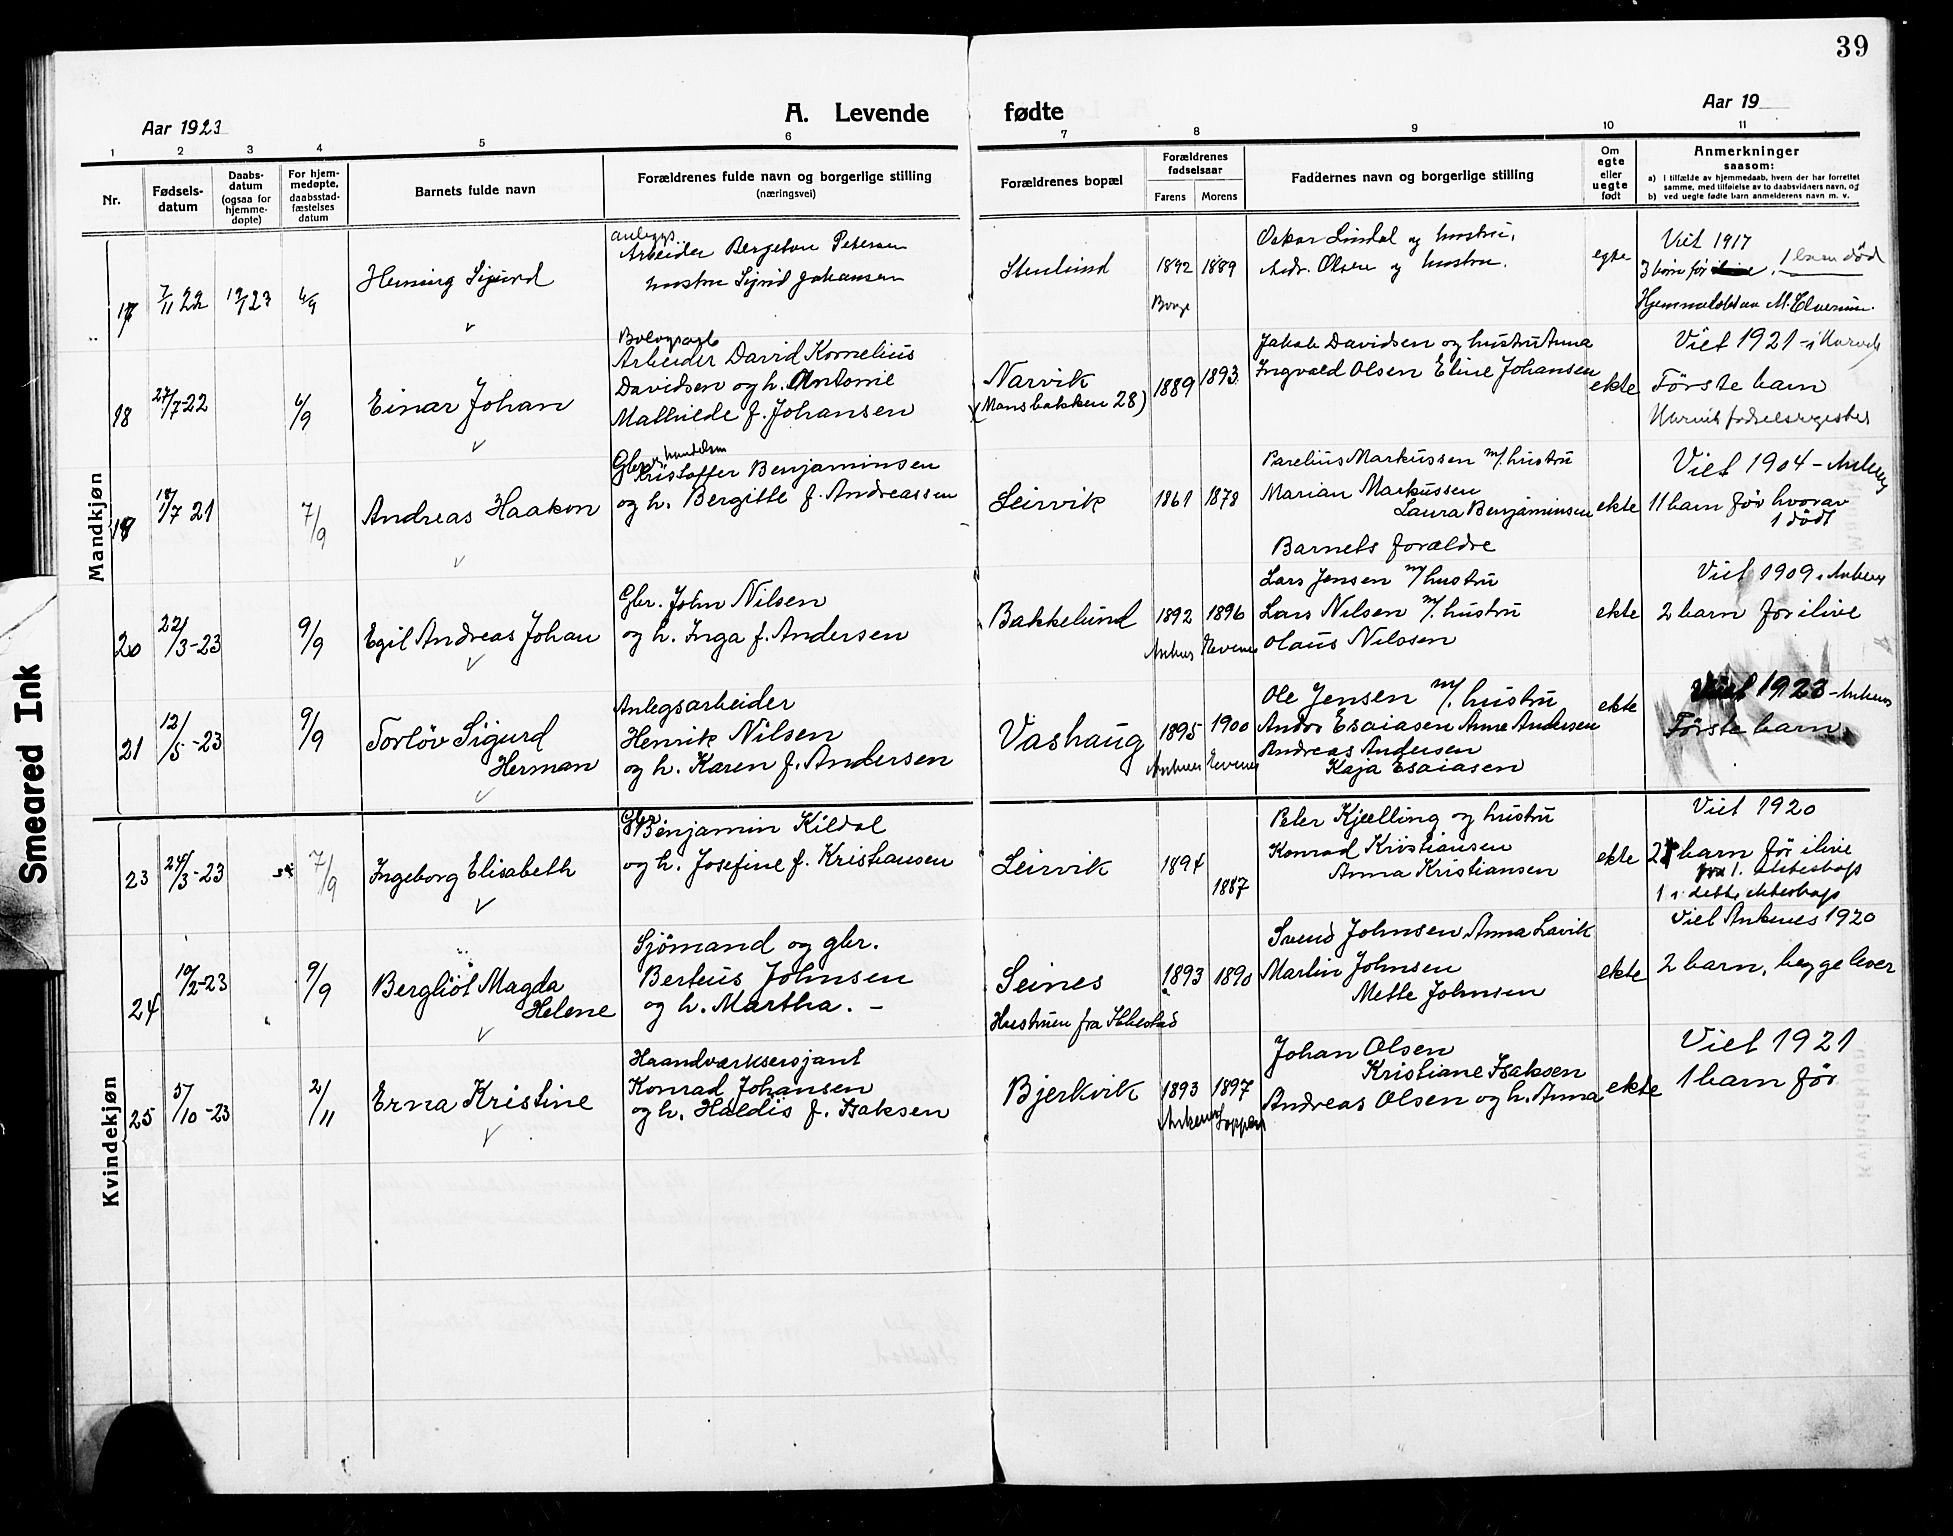 39
Aar 1923
A. Levende fødte
Aar 19
1 2 3 4 5 6 7 8 9 10 11
Nr.
Fødsels-
datum
Daabs-
datum
(ogsaa for
hjemme-
døpte)
For hjem-
medøpte,
daabsstad-
fæstelses
datum
Barnets fulde navn
Forældrenes fulde navn og borgerlige stilling
(næringsvei)
Forældrenes bopæl
Forældrenes
fødselsaar
Farens Morens
Faddernes navn og borgerlige stilling
Om
egte
eller
uegte
født
Anmerkninger
saasom:
a) I tilfælde av hjemmedaab, hvem der har forrettet
samme, med tilføielse av to daabsvidners navn, og
b) ved uegte fødte barn anmelderens navn m. v.
Mandkjøn
17
7/11 22
6/9
Henning Sigurd
Anleggs.
Arbeider Bergeton Petersen
hustru Sigrid Johansen
Stenlund
1892 1889
Borge
Oskar Lindal og hustru,
Andr. Olsen og hustru.
egte
Viet 1917
3 børn før 1 barn død
18
27/7-22
6/9
Einar Johan
Arbeider David Kornelius
Davidsen og h. Antonie
Mathilde f. Johansen
Narvik
(Mansbakken 28)
1889 1893
Jakob Davidsen og hustru Anna
Ingvald Olsen Eline Johansen
ekte
Viet 1921 - i Narvik
Første barn
Narvik fødselsregister
19
18/7 21
7/9
Andreas Haakon
Gbr. og handelsm
Kristoffer Benjaminsen
og h. Bergitte f. Andreassen
Leirvik
1861 1878
Parelius Markussen m/. hustru
Marian Markussen
Laura Benjaminsen
Barnets forældre
ekte
Viet 1904 - Ankenes
11 barn før hvorav
1 dødt
20
22/3-23
9/9
Egil Andreas Johan
Gbr. John Nilsen
og h. Inga f. Andersen
Bakkelund
1892 1896
Lars Jensen m/ hustru
Lars Nilsen m/. hustru
Olaus Nilssen
ekte
Viet 1909 i Ankenes
2 barn før ilive
21
12/5-23
9/9
Torlöv Sigurd
Herman
Anlegsarbeider
Henrik Nilsen
og h. Karen f. Andersen
Vashaug
1895 1900
Ole Jensen m/. hustru
Andor Esaiasen Anne Andersen
Andreas Andersen
Kaja Esaiasen
ekte
Viet 1923 - Ankenes
Første barn
Kvindekjøn
23
24/3-23
7/9
Ingeborg Elisabeth
Gbr.
Benjamin Kildal
og h. Josefine f. Kristiansen
Leirvik
1894
1887
Peter Kjelling og hustru
Konrad Kristiansen
Anna Kristiansen
ekte
Viet 1920
2 barn før ilive
fra 1. ekteskap
1 i dette ekteskap
24
10/2-23
9/9
Bergliöt Magda
Helene
Sjömand og gbr.
Berteus Johnsen
og h. Martha. -
Seines
Hustruen fra Ibbestad
1893 1890
Svend Johnsen Anna Lavik
Martin Johnsen
Mette Johnsen
ekte
Viet Ankenes 1920
2 barn, begge lever
25
5/10-23
2/11
Erna Kristine
Haandværksersjant
Konrad Johansen
og h. Haldis f. Isaksen
Bjerkvik
1893 1897
Ankenes Loppen
Johan Olsen
Kristiane Isaksen
Andreas Olsen og h. Anna
ekte
Viet 1921
1 barn før
Smeared Ink